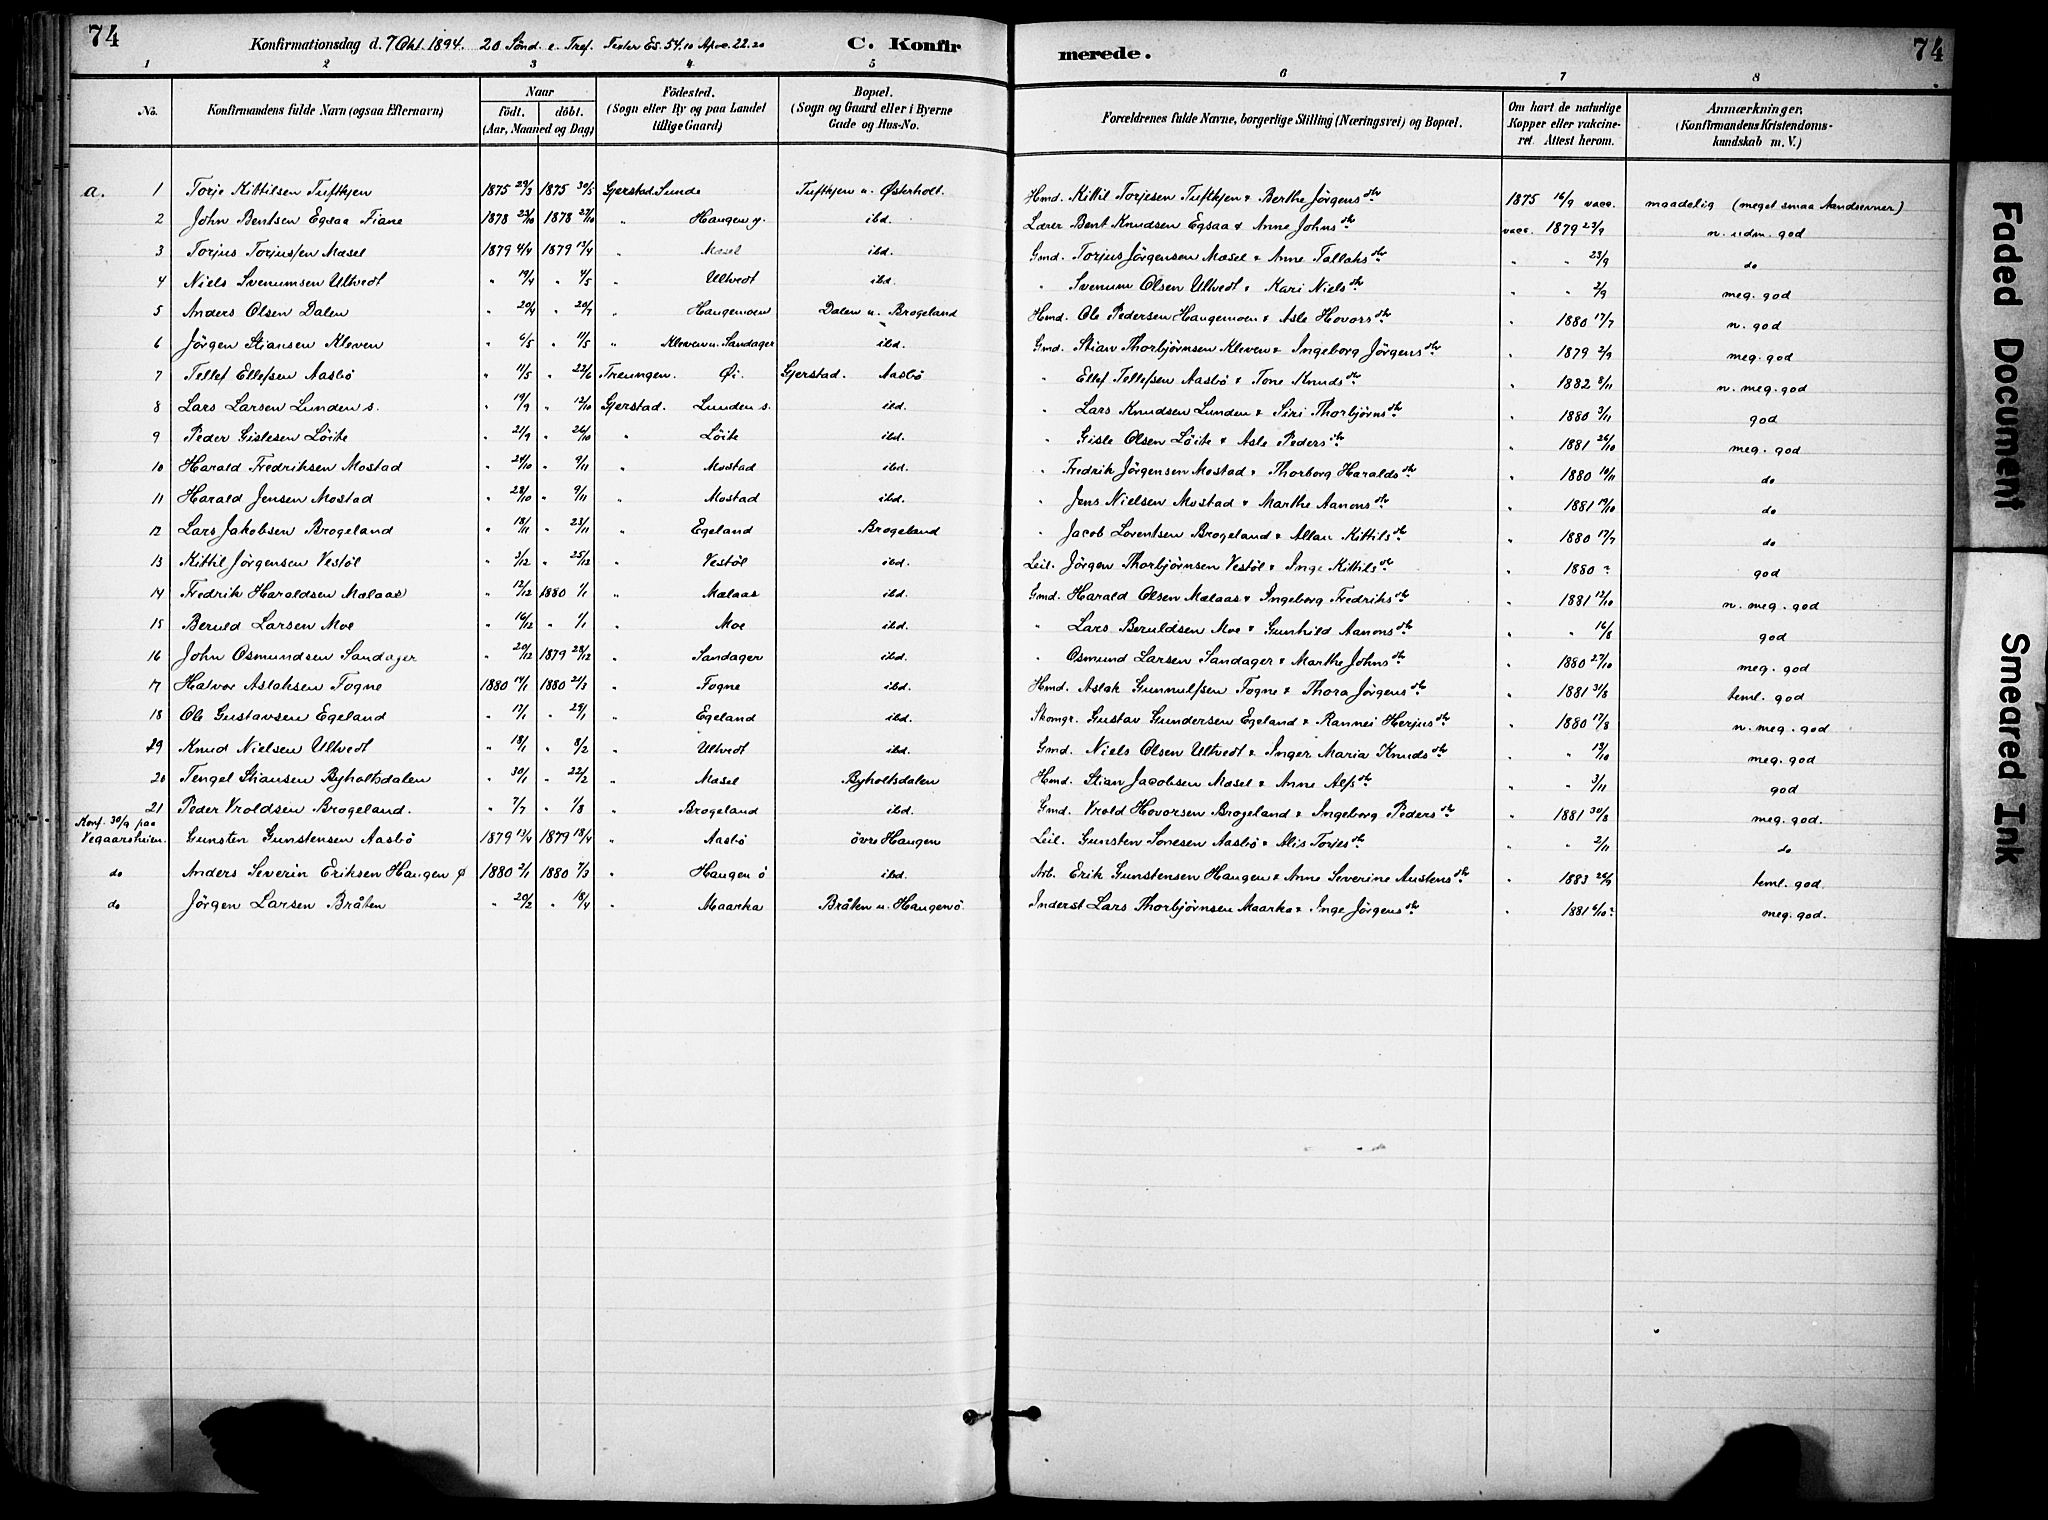 74
Konfirmationsdag d. 7 Okt. 1894. 20 Sönd. e. Tref.
C. Konfir
merede.
74
1 2 3 4 5 6 7 8
No. Konfirmandens fulde Navn (ogsaa Efternavn) Naar födt. döbt. (Aar, Maaned og Dag) Födested. (Sogn eller By og paa Landet tillige Gaard) Bopæl. (Sogn og Gaard eller i Byerne Gade og Hus-No. Forældrenes fulde Navne, borgerlige Stilling (Næringsvei) og Bopæl. Om havt de naturlige Kopper eller vakcineret. Attest herom. Anmærkninger, (Konfirmandens Kristendomskundskab m. V.)
a. 1 Torje Kittilsen Tuftkjen 1875 29/3 1875 30/5 Gjerstad. Sunde Tuftkjen u. Østerholt. Hmd. Kittil Torjesen Tuftkjen & Berthe Jörgensdtr 1875 16/9 vacc. maadelig (meget smaa Aandsevner)
2 John Bentsen Egsaa Fiane 1878 22/10 1878 27/10 " Haugen y. ibd. Lærer Bent Knudsen Egsaa & Anne Johnsdtr vacc. 1879 23/9 n. udm. god
3 Torjus Torjussen Mæsel 1879 4/4 1879 13/4 " Mæsel ibd. Gmd. Torjus Jörgensen Mæsel & Anne Tallaksdtr " " 23/9 do
4 Niels Svenumsen Ultvedt " 19/4 " 4/5 " Ultvedt ibd. " Svenum Olsen Ultvedt & Kari Nielsdtr " " 2/9 meg. god
5 Anders Olsen Dalen " 20/4 " 20/7 " Haugemoen Dalen u. Brogeland Hmd. Ole Pedersen Haugemoen & Asle Hovorsdtr " 1880 17/7 n. god
6 Jörgen Stiansen Kleven " 6/5 " 11/5 " Kleven u. Sandager ibd. Gmd. Stian Thorbjørnsen Kleven & Ingeborg Jörgensdtr " 1879 2/9 meg. god
7 Tellef Ellefsen Aasbö " 11/5 " 22/6 Treungen. Øi Gjerstad. Aasbö " Ellef Tellefsen Aasbö & Tone Knudsdtr " 1882 8/11 n. meg. god
8 Lars Larsen Lunden s. " 19/9 " 12/10 Gjerstad. Lunden s. ibd. " Lars Knudsen Lunden & Siri Thorbjørnsdtr " 1880 3/11 god
9 Peder Gislesen Löite " 21/9 " 26/10 " Löite ibd. " Gisle Olsen Löite & Asle Pedersdtr " 1881 26/10 meg. god
10 Harald Fredriksen Mostad " 24/10 " 9/11 " Mostad ibd. " Fredrik Jörgensen Mostad & Thorborg Haraldsdtr " 1880 10/11 do
11 Harald Jensen Mostad " 28/10 " 9/11 " Mostad ibd. " Jens Nielsen Mostad & Marthe Aanonsdtr " 1881 19/10 do
12 Lars Jakobsen Brogeland " 18/11 " 23/11 " Egeland Brogeland " Jacob Lorentsen Brogeland & Allau Kittilsdtr " 1880 17/7 do
13 Kittil Jörgensen Vestøl " 3/12 " 25/12 " Vestøl ibd. Leil. Jörgen Thorbjørnsen Vestøl & Inge Kittilsdtr " 1880 ? god
14 Fredrik Haraldsen Mælaas " 12/12 1880 1/1 " Mælaas ibd. Gmd. Harald Olsen Mælaas & Ingeborg Fredriksdtr " 1881 12/10 n. meg. god
15 Beruld Larsen Moe " 16/12 " 1/1 " Moe ibd. " Lars Beruldsen Moe & Gunhild Aanonsdtr " " 16/8 god
16 John Osmundsen Sandager " 20/12 1879 28/12 " Sandager ibd. " Osmund Larsen Sandager & Marthe Johnsdtr " 1880 27/10 meg. god
17 Halvor Aslaksen Fogne 1880 14/1 1880 21/3 " Fogne ibd. Hmd. Aslak Gunnulfsen Fogne & Thora Jörgensdtr " 1881 31/8 teml. god
18 Ole Gustavsen Egeland " 17/1 " 29/1 " Egeland ibd. Skomgr. Gustav Gundersen Egeland & Rannei Herjusdtr " 1880 17/8 n. meg. god
29 Knud Nielsen Ultvedt " 18/1 " 8/2 " Ultvedt ibd. Gmd. Niels Olsen Ultvedt & Inger Maria Knudsdtr " " 13/10 meg. god
20 Tengel Stiansen Byholtsdalen " 30/1 " 22/2 " Mæsel Byholtsdalen Hmd. Stian Jacobsen Mæsel & Anne Alfsdtr " " 3/11 god
21 Peder Vroldsen Brogeland. " 7/7 " 1/8 " Brogeland ibd. Gmd. Vrold Hovorsen Brogeland & Ingeborg Pedersdtr " 1881 30/8 meg. god.
Konf. 30/9 paa
Vegaarsheien. Gunsten Gunstensen Aasbö 1879 13/4 1879 18/4 " Aasbö övre Haugen Leil. Gunsten Sonesen Aasbö & Alis Torjesdtr " " 2/11 do
do Anders Severin Eriksen Haugen ø 1880 2/1 1880 7/3 " Haugen ö ibd. Arb. Erik Gunstensen Haugen & Anne Severine Austensdtr " 1883 26/9 teml. god.
do Jörgen Larsen Bråten " 20/2 " 18/4 " Maarka Bråten u. Haugen ö. Inderst Lars Thorbjørnsen Maarka & Inge Jörgensdtr " 1881 6/10 ? meg. god.
Faded Document
Smeared Ink